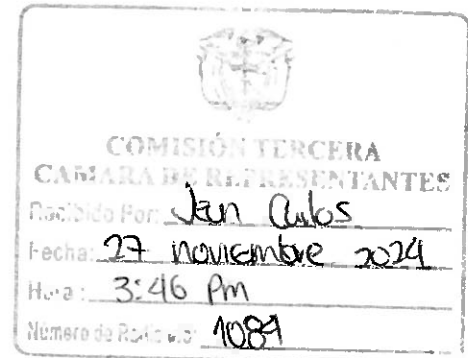 COMISIÓN TERCERA
CAMARA DE REPRESENTANTES
Recibido Por: Jean Carlos
Fecha: 27 noviembre 2024
Hora: 3:46 Pm
Número de Radicado: 1089